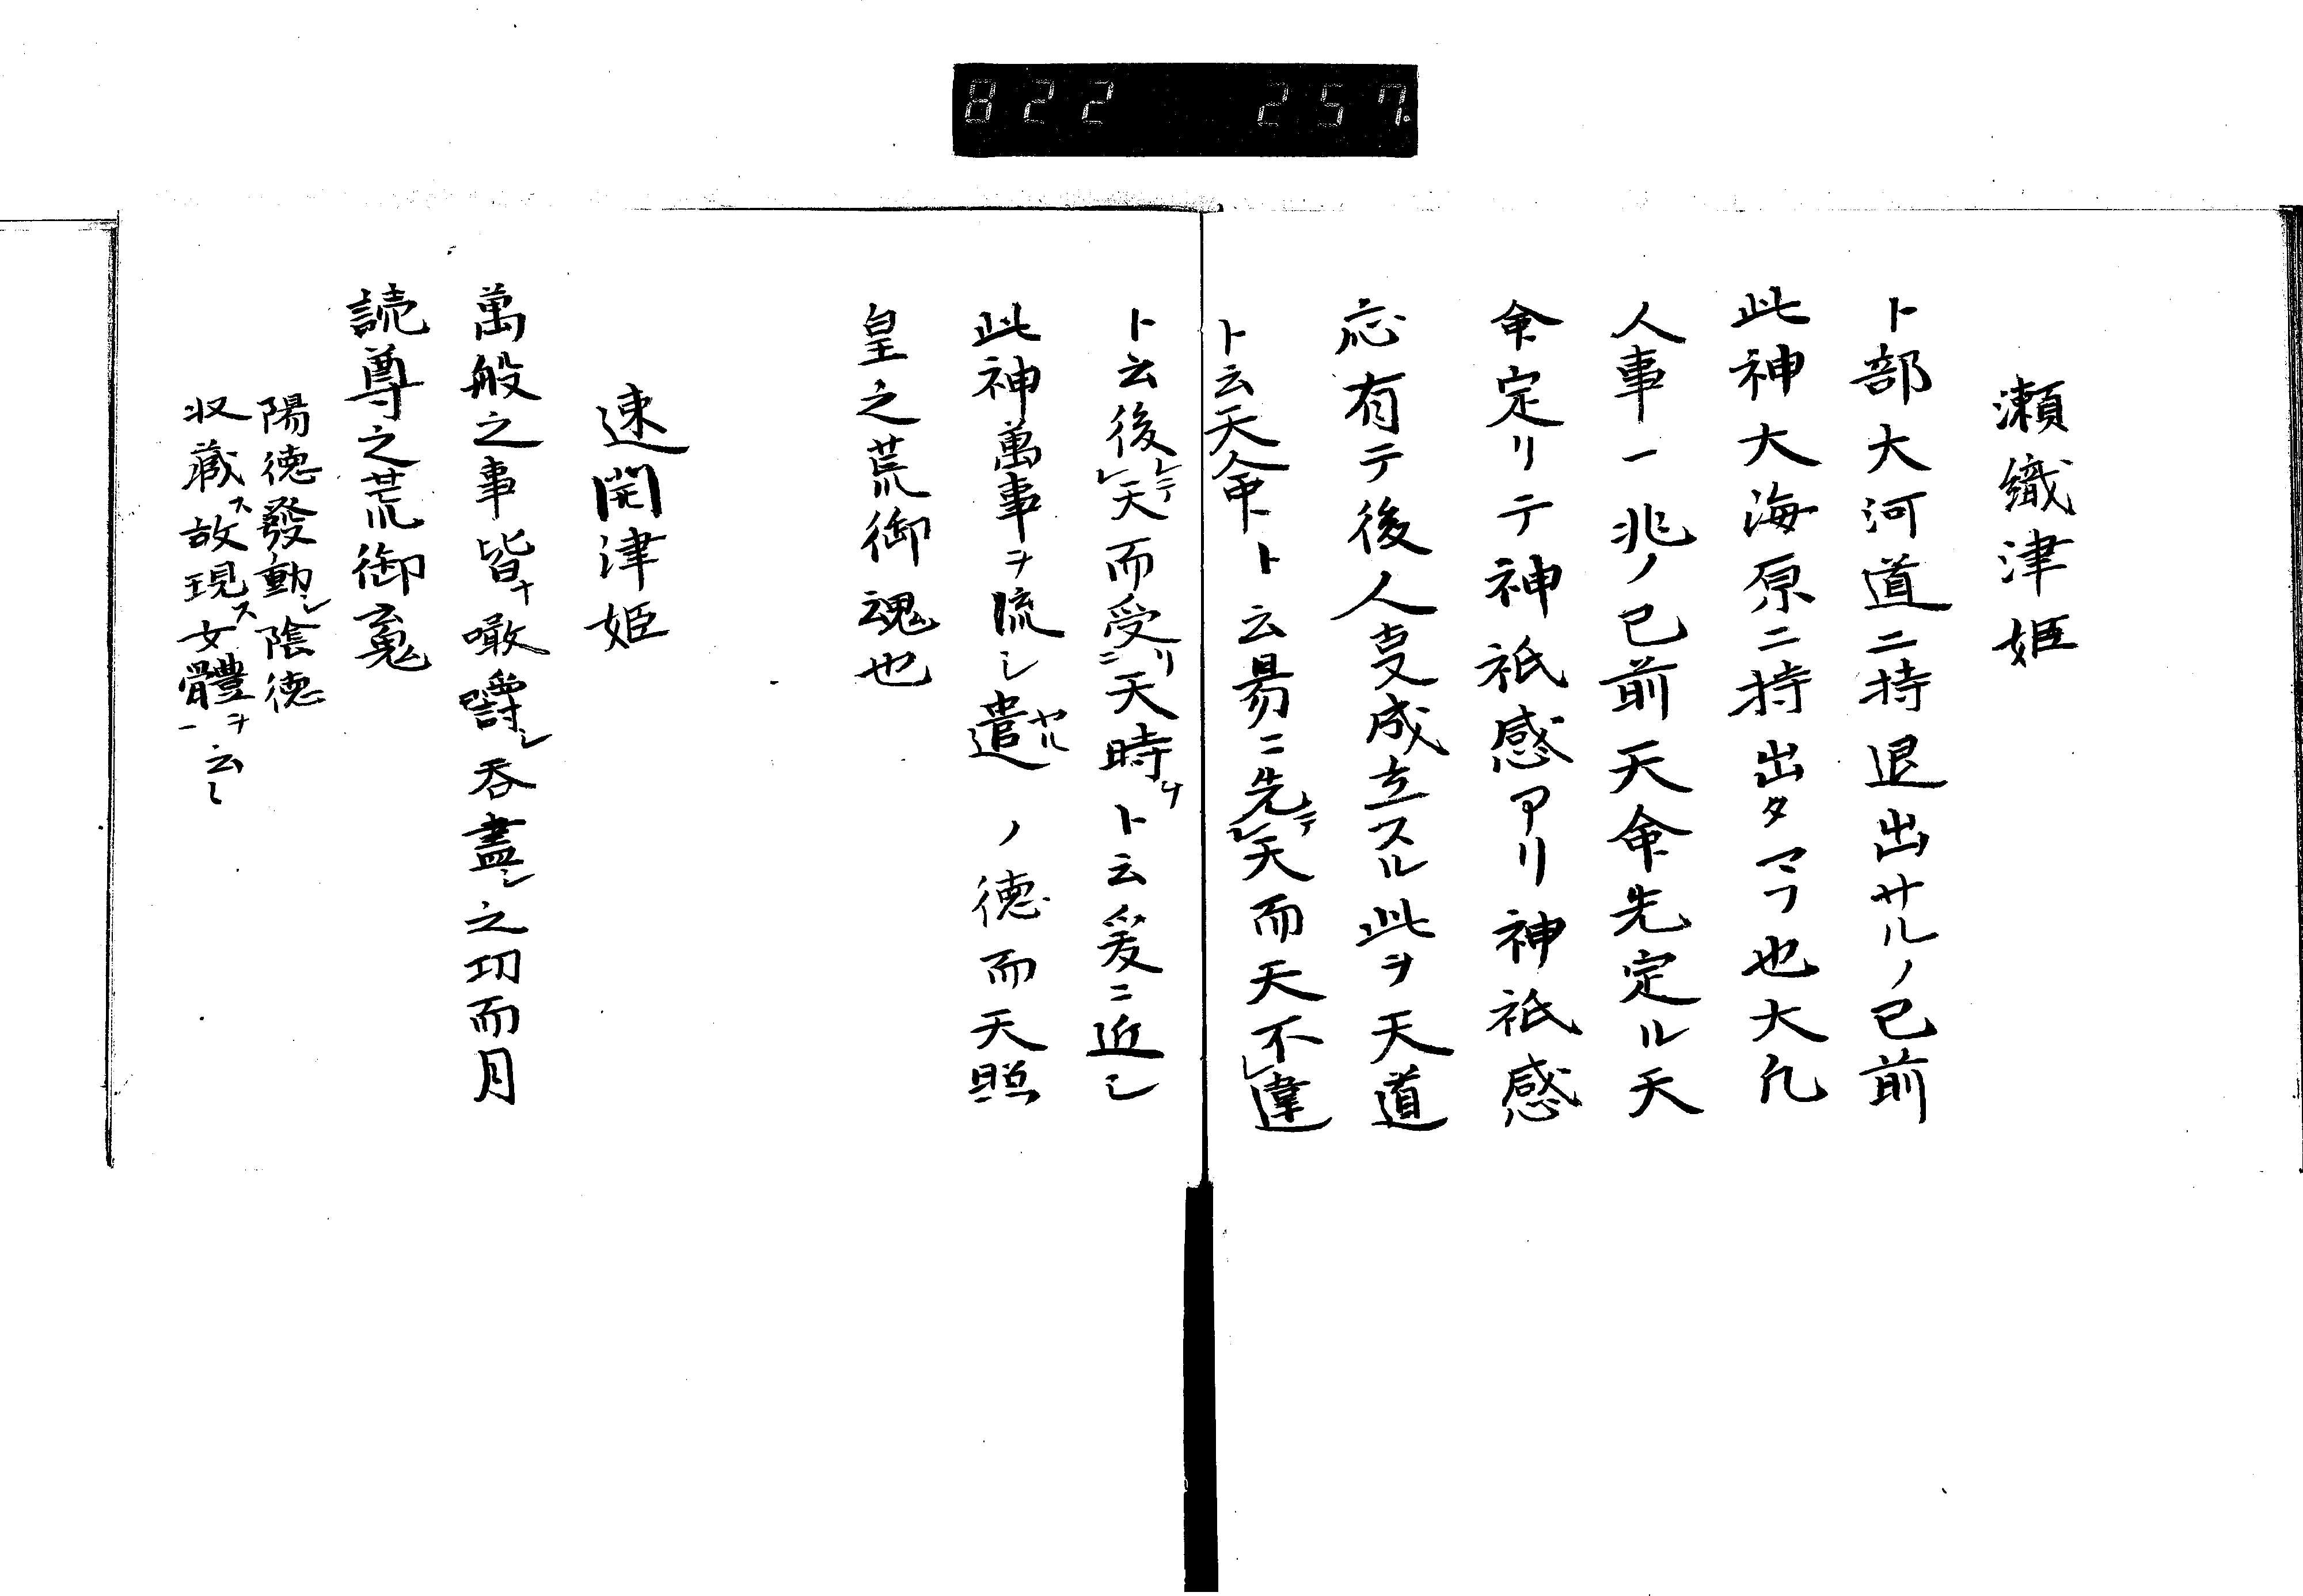 822 257
瀬織津姫
卜部大河道ニ持退出サルノ已前
此神大海原ニ持出タマフ也大凢
人事一兆ノ已前天命先定ル天
命定リテ神祇感アリ神祇感
応有テ後人事成立スル此ヲ天道
ト云天命ト云易ニ先テレ天而天不レ違
ト云後レテレ天而受リニ天時ヲト云爰ニ近シ
此神萬事ヲ流シ遣ヤルノ徳而天照
皇之荒御魂也
速開津姫
萬般之事皆ナ噉嚼シ呑盡シ之功而月
読尊之荒御䰟
陽徳發動シ陰徳
収蔵ス故現ス女體ヲ一云〻